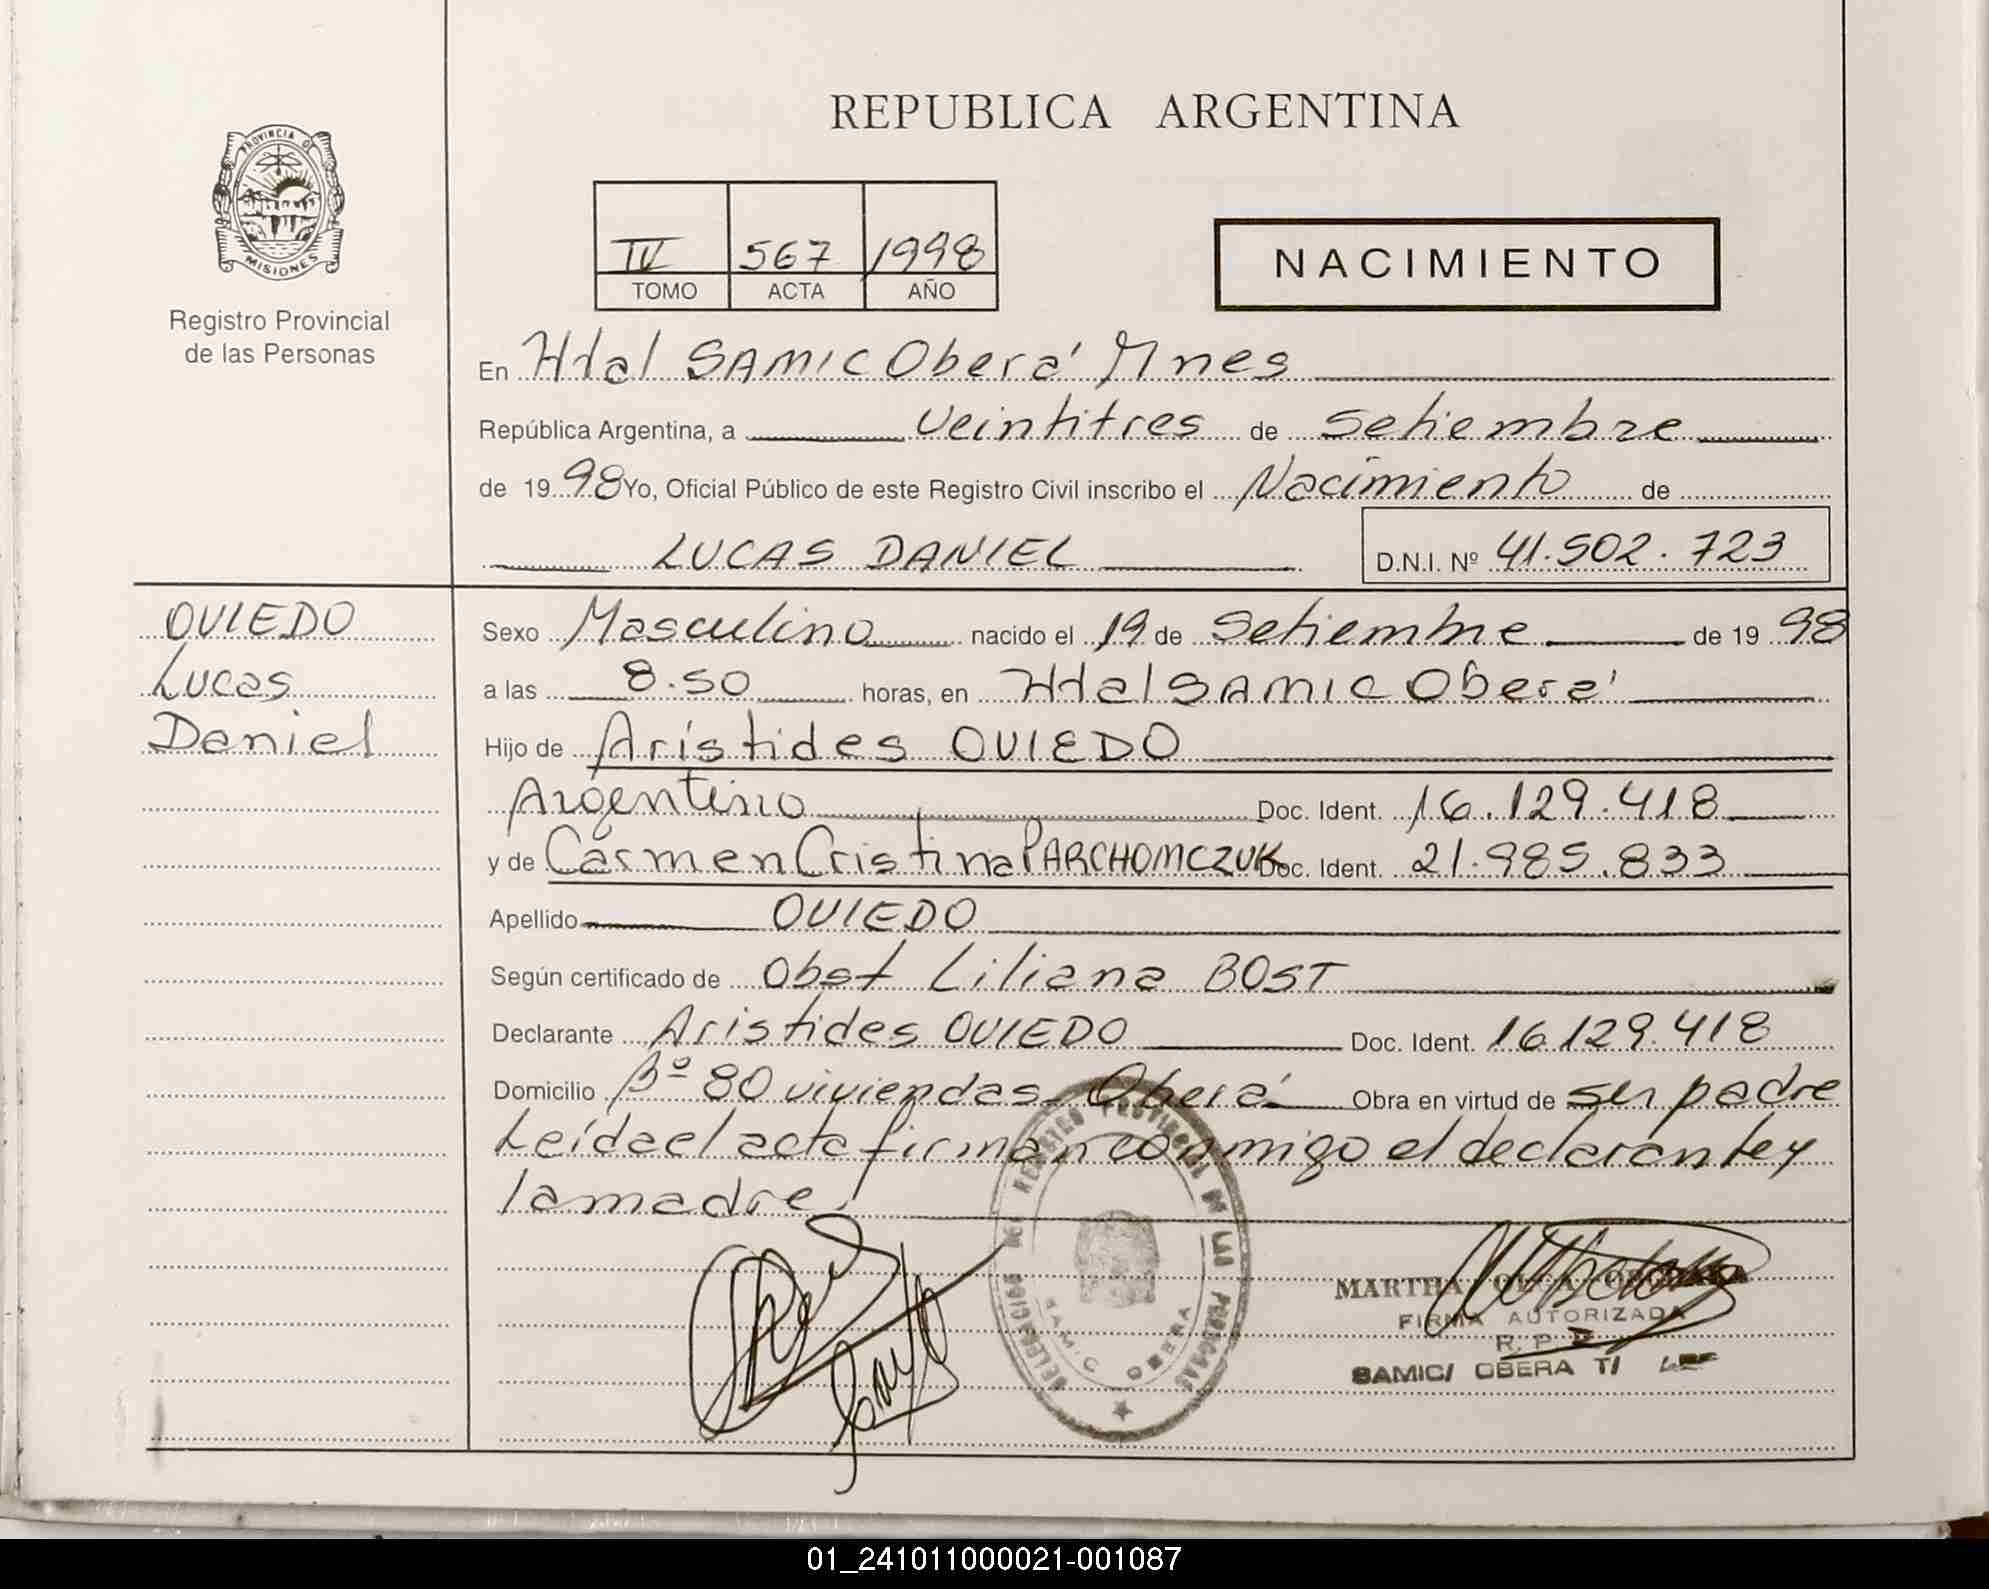 REPUBLICA ARGENTINA
PROVINCIA D
MISIONES
Registro Provincial
de las Personas
IV 567 1998
TOMO ACTA AÑO
NACIMIENTO
En Htal SAMIC Oberá Mnes
República Argentina, a veintitres de setiembre
de 1998 Yo, Oficial Público de este Registro Civil inscribo el Nacimiento de
LUCAS DANIEL D.N.I. Nº 41.502.723
OVIEDO
Lucas
Daniel
Sexo Masculino nacido el 19 de Setiembre de 1998
a las 8.50 horas, en Htal SAMIC Oberá
Hijo de Arístides OVIEDO
Argentino Doc. Ident. 16.129.418
y de Carmen Cristina PARCHOMCZUK Doc. Ident. 21.985.833
Apellido OVIEDO
Según certificado de Obst Liliana BOST
Declarante Aristides OVIEDO Doc. Ident. 16.129.418
Domicilio Bº 80 viviendas Oberá Obra en virtud de ser padre
Leída el acta firman conmigo el declarante y
la madre
DELEGACION DEL REGISTRO PROVINCIAL DE LAS PERSONAS
SAMIC OBERA
MARTHA
FIRMA AUTORIZADA
R. P.
SAMIC/ OBERA T/
01_241011000021-001087